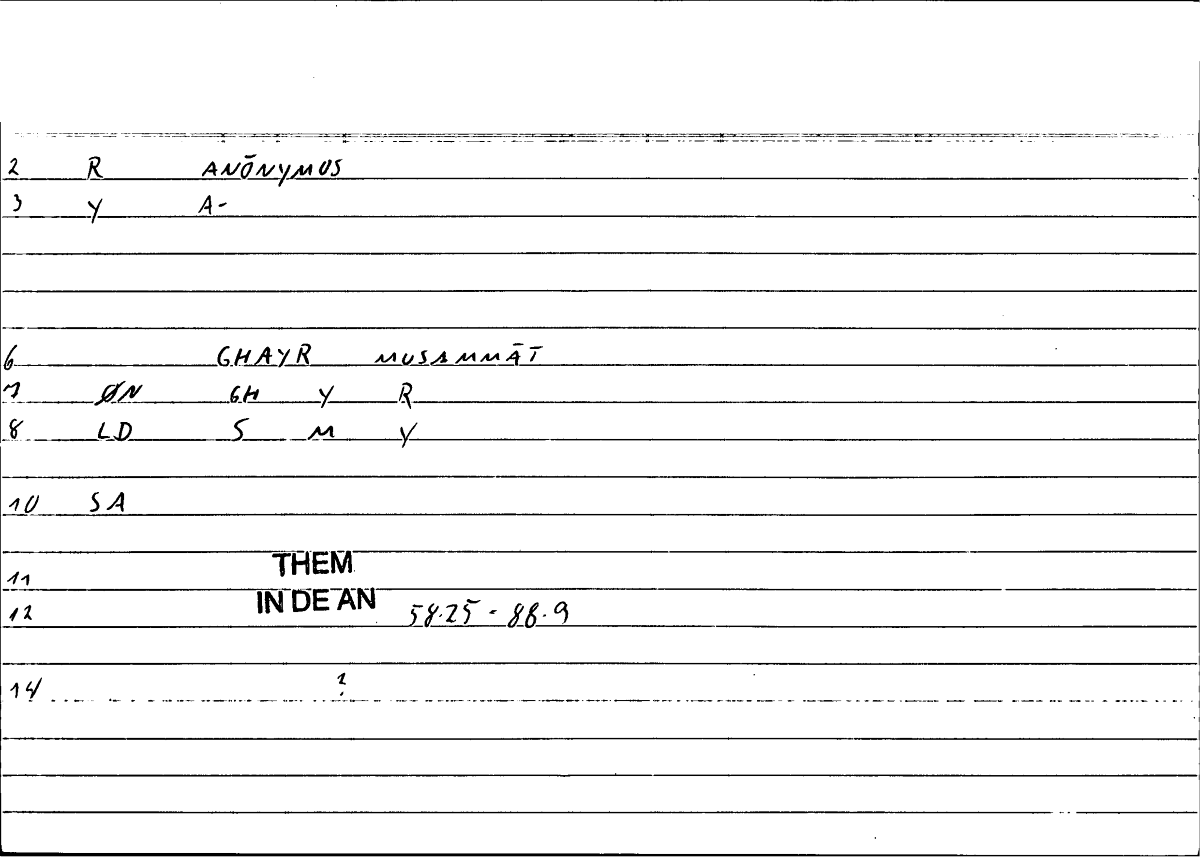 2 R ANŌNYMUS
3 Y A-
6 GHAYR MUSAMMĀT
7 ØN GH Y R
8 LD S M Y
10 SA
THEM
11
IN DE AN
12 58.25 - 88.9
14 ?